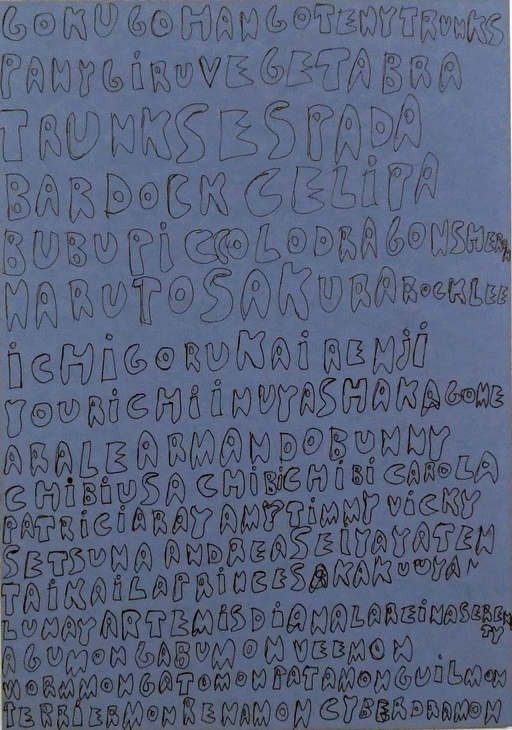 GOKUGOHANGOTENYTRUNKS
PANYGiRUVEGETABRA
TRUNKSESPADA
BARDOCKCELiPA
BUBUPiCCOLODRAGONSHERON
NARUTOSAKURAROCKLEE
iCHiGORUKAiRENJi
YOURiCHiiNUYASHAKAGOME
ARALEARMANDOBUNNY
CHiBiUSACHiBiCHiBiCAROLA
PATRiCiARAYAMYTiMMYViCKY
SETSUNAANDREASEiYAYATEN
TAiKAiLAPRiNCESAKAKUUYAN
LUNAYARTEMiSDiANALAREiNASERENTY
AGUMONGABUMONVEEMON
WORMMONGATOMONPATAMONGUiLMON
TERRiERMONRENAMONCYBERDRAMON